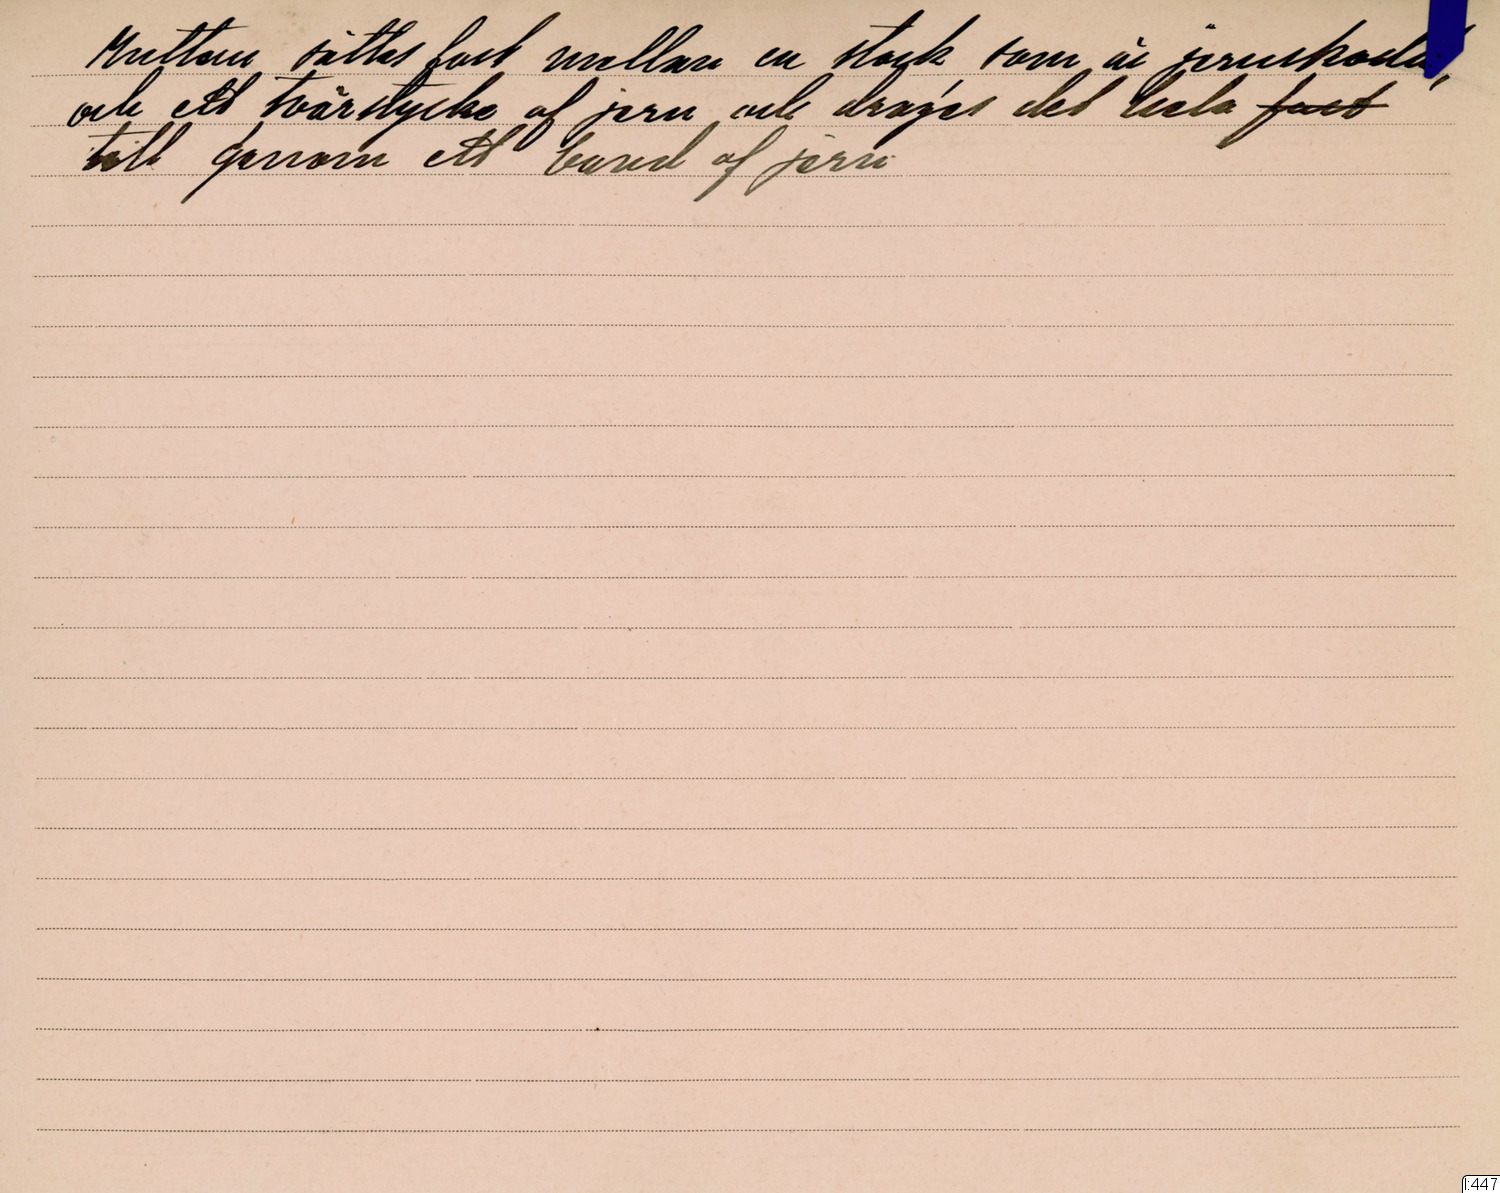 sättes fast mellan en stock som är jernskodd,
och ett tvärstycke af jern och drages det hela fast
till genom ett band af jern
I:447